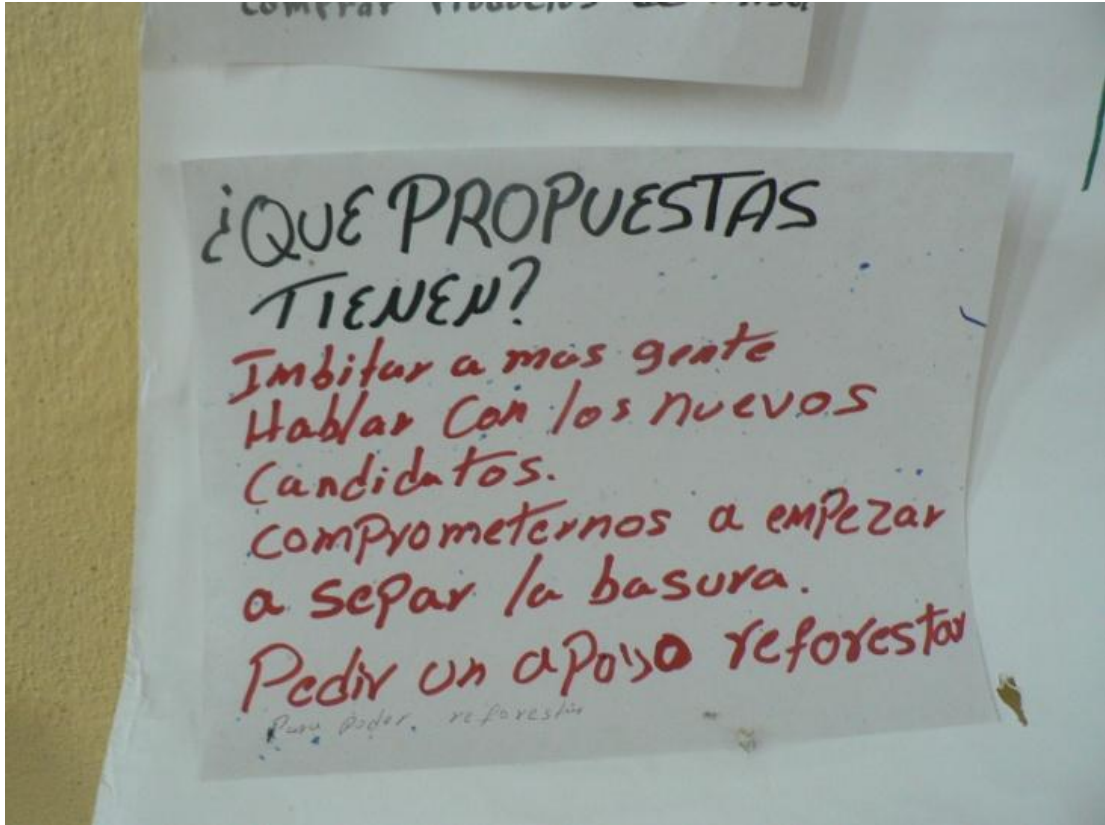 comprar
¿QUE PROPUESTAS
TIENEN?
Imbitar a mas gente
Hablar con los nuevos
candidatos.
comprometernos a empezar
a separ la basura.
Pedir un apoyo reforestar
Para poder reforestar